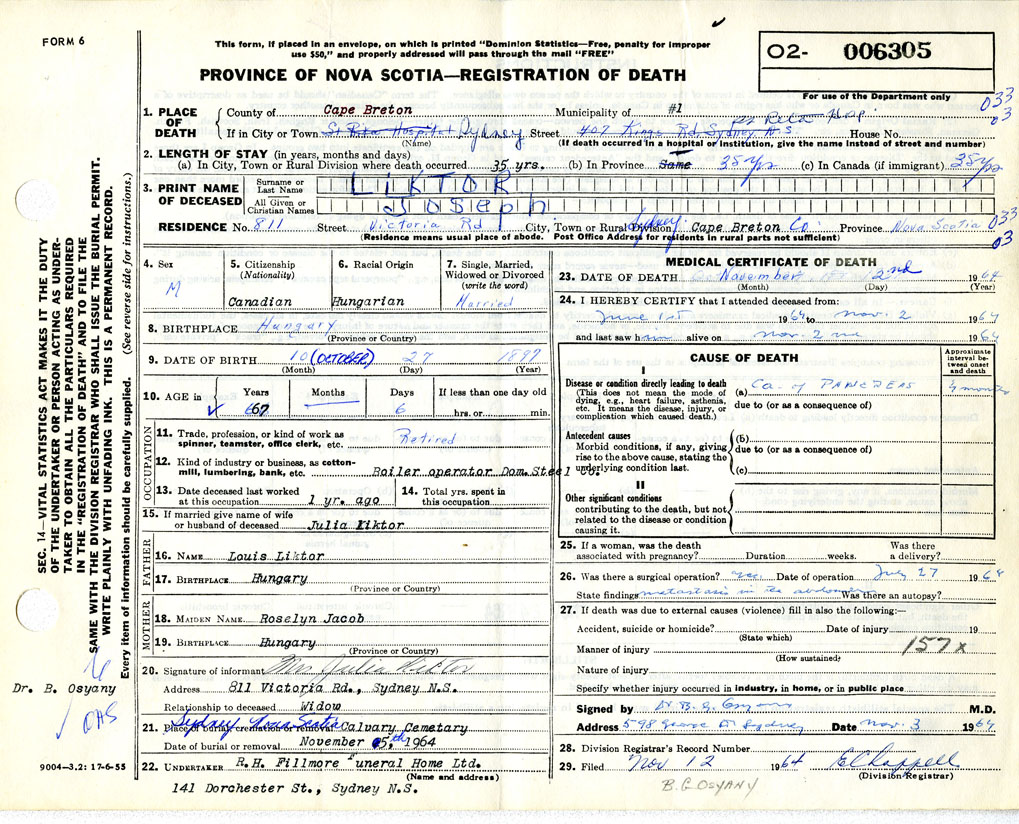 FORM 6
This form, if placed in an envelope, on which is printed "Dominion Statistics—Free, penalty for improper
use $50," and properly addressed will pass through the mail "FREE"
PROVINCE OF NOVA SCOTIA—REGISTRATION OF DEATH
02- 006305
For use of the Department only
033
03
1. PLACE OF DEATH
County of Cape Breton Municipality of #1
If in City or Town St Rita Hospital Sydney Street 409 Kings Rd, Sydney N.S. St Rita Hosp House No.
(Name) (If death occurred in a hospital or institution, give the name instead of street and number)
2. LENGTH OF STAY (in years, months and days)
(a) In City, Town or Rural Division where death occurred 35 yrs. (b) In Province Same 38 yrs (c) In Canada (if immigrant) 38 yrs
3. PRINT NAME OF DECEASED
Surname or Last Name LIKTOR
All Given or Christian Names Joseph
RESIDENCE No. 811 Street Victoria Rd City, Town or Rural Division Sydney Cape Breton Co Province Nova Scotia
(Residence means usual place of abode. Post Office Address for residents in rural parts not sufficient)
033
03
4. Sex
M
5. Citizenship
(Nationality)
Canadian
6. Racial Origin
Hungarian
7. Single, Married, Widowed or Divorced
(write the word)
Married
8. BIRTHPLACE Hungary
(Province or Country)
9. DATE OF BIRTH 10 (OCTOBER) 27 1897
(Month) (Day) (Year)
10. AGE in Years Months Days If less than one day old
67 6 hrs. or min.
OCCUPATION
11. Trade, profession, or kind of work as
spinner, teamster, office clerk, etc. Retired
12. Kind of industry or business, as cotton-
mill, lumbering, bank, etc. Boiler operator Dom. Steel Co.
13. Date deceased last worked
at this occupation 1 yr. ago
14. Total yrs. spent in
this occupation
15. If married give name of wife
or husband of deceased Julia Liktor
FATHER
16. NAME Louis Liktor
17. BIRTHPLACE Hungary
(Province or Country)
MOTHER
18. MAIDEN NAME Roselyn Jacob
19. BIRTHPLACE Hungary
(Province or Country)
20. Signature of informant Mrs Julia Liktor
Address 811 Victoria Rd., Sydney N.S.
Relationship to deceased Widow
Sydney, Nova Scotia
21. Place of burial, cremation or removal Calvary Cemetary
Date of burial or removal November 5,th 1964
22. UNDERTAKER R.H. Fillmore Funeral Home Ltd.
(Name and address)
141 Dorchester St., Sydney N.S.
MEDICAL CERTIFICATE OF DEATH
23. DATE OF DEATH November 2nd 1964
(Month) (Day) (Year)
24. I HEREBY CERTIFY that I attended deceased from:
June 1st 1964 to Nov. 2 1964
and last saw him alive on Nov. 2nd 1964
CAUSE OF DEATH
Approximate interval between onset and death
I
Disease or condition directly leading to death
(This does not mean the mode of
dying, e.g., heart failure, asthenia,
etc. It means the disease, injury, or
complication which caused death.)
(a) Ca. of PANCREAS
due to (or as a consequence of)
Antecedent causes
Morbid conditions, if any, giving
rise to the above cause, stating the
underlying condition last.
(b)
due to (or as a consequence of)
(c)
II
Other significant conditions
contributing to the death, but not
related to the disease or condition
causing it.
25. If a woman, was the death
associated with pregnancy? Duration weeks. Was there
a delivery?
26. Was there a surgical operation? yes. Date of operation July 27 1964
State findings metastasis in the abdomen Was there an autopsy?
27. If death was due to external causes (violence) fill in also the following:—
Accident, suicide or homicide? Date of injury 19
(State which)
Manner of injury 157x
(How sustained)
Nature of injury
Specify whether injury occurred in industry, in home, or in public place
Signed by Dr B. G. Osyany M.D.
Address 598 George St Sydney Date Nov. 3 1964
28. Division Registrar's Record Number
29. Filed Nov 12 1964 E Chappell
(Division Registrar)
B.G OSYANY
SEC. 14—VITAL STATISTICS ACT MAKES IT THE DUTY
OF THE UNDERTAKER OR PERSON ACTING AS UNDER-
TAKER TO OBTAIN ALL THE PARTICULARS REQUIRED
IN THE "REGISTRATION OF DEATH" AND TO FILE THE
SAME WITH THE DIVISION REGISTRAR WHO SHALL ISSUE THE BURIAL PERMIT.
WRITE PLAINLY WITH UNFADING INK. THIS IS A PERMANENT RECORD.
Every item of information should be carefully supplied. (See reverse side for instructions.)
Dr. B. Osyany
OAS
9004—3.2: 17-6-55